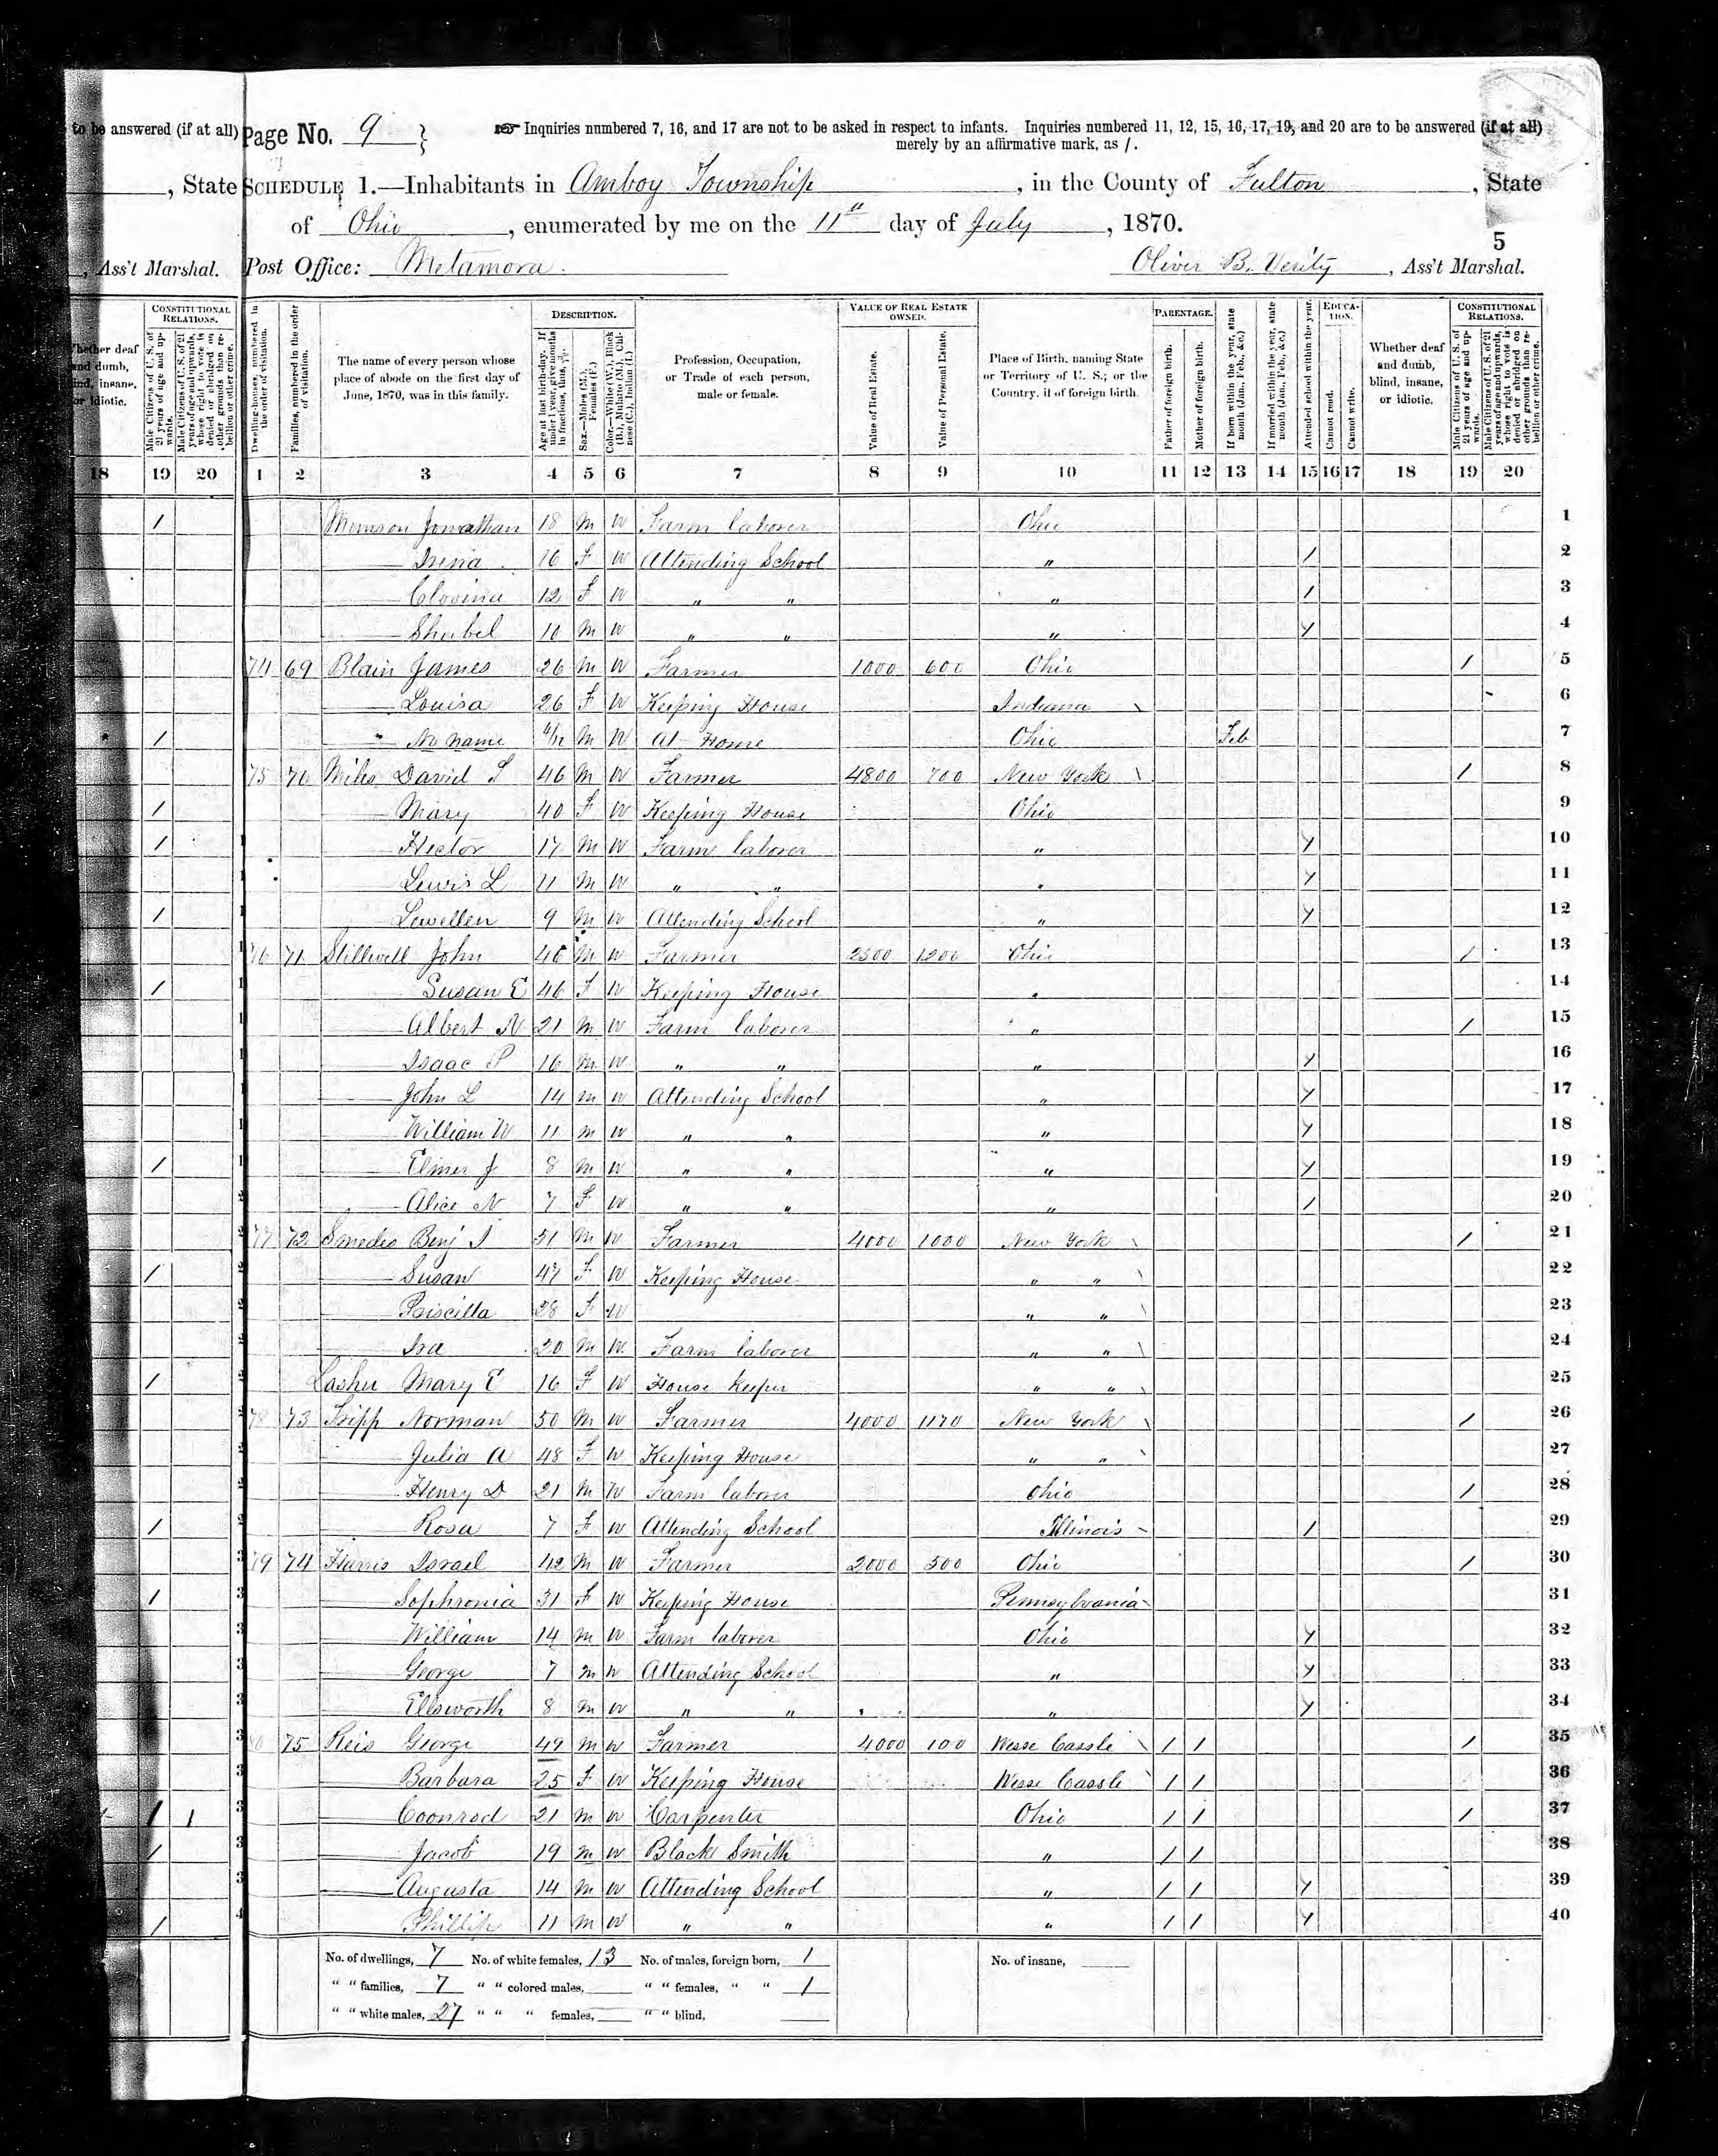 to be answered (if at all)
, State
, Ass't Marshal.
Page No. 9
Inquiries numbered 7, 16, and 17 are not to be asked in respect to infants. Inquiries numbered 11, 12, 15, 16, 17, 19, and 20 are to be answered (if at all)
merely by an affirmative mark, as /.
SCHEDULE 1.—Inhabitants in Amboy Township, in the County of Fulton, State
of Ohio, enumerated by me on the 11th day of July, 1870.
5
Post Office: Metamora. Oliver B. Verity, Ass't Marshal.
Dwelling-houses, numbered in the order of visitation.
Families, numbered in the order of visitation.
The name of every person whose place of abode on the first day of June, 1870, was in this family.
DESCRIPTION.
Age at last birth-day. If under 1 year, give months in fractions, thus,
Sex.—Males (M.), Females (F.)
Color.—White (W.), Black (B.), Mulatto (M.), Chinese (C.), Indian (I.)
Profession, Occupation, or Trade of each person, male or female.
VALUE OF REAL ESTATE OWNED.
Value of Real Estate.
Value of Personal Estate.
Place of Birth, naming State or Territory of U. S.; or the Country, if of foreign birth.
PARENTAGE.
Father of foreign birth.
Mother of foreign birth.
If born within the year, state month (Jan., Feb., &c.)
If married within the year, state month (Jan., Feb., &c.)
Attended school within the year.
EDUCATION.
Cannot read.
Cannot write.
Whether deaf and dumb, blind, insane, or idiotic.
CONSTITUTIONAL RELATIONS.
Male Citizens of U. S. of 21 years of age and upwards.
Male Citizens of U. S. of 21 years of age and upwards, whose right to vote is denied or abridged on other grounds than rebellion or other crime.
18 19 20 1 2 3 4 5 6 7 8 9 10 11 12 13 14 15 16 17 18 19 20
Jonathan 18 M W Farm laborer Ohio 1
16 F W Attending School " / 2
Clovina 12 F W " " " / 3
Shubel 10 M W " " " / 4
74 69 Blain James 26 M W Farmer 1000 600 Ohio / 5
Louisa 26 F W Keeping House Indiana 6
No name 4/12 M W At Home Ohio Feb 7
75 70 Miles David S 46 M W Farmer 4800 700 New York / 8
Mary 40 F W Keeping House Ohio 9
Hector 17 M W Farm laborer " / 10
Lewis L 11 M W " " " / 11
Lewellen 9 M W Attending School " / 12
76 71 Stillwell John 46 M W Farmer 2500 1200 Ohio / 13
Susan E 46 F W Keeping House " 14
Albert N 21 M W Farm laborer " / 15
Isaac P 16 M W " " " / 16
John L 14 M W Attending School " / 17
William W 11 M W " " " / 18
Elmer J 8 M W " " " / 19
Alice N 7 F W " " " / 20
77 72 Smedes Benj I 51 M W Farmer 4000 1000 New York / 21
Susan 47 F W Keeping House " " 22
Priscilla 28 F W " " 23
Ira 20 M W Farm laborer " " 24
Lasher Mary E 16 F W House Keeper " " 25
78 73 Tripp Norman 50 M W Farmer 4000 1170 New York / 26
Julia A 48 F W Keeping House " " 27
Henry D 21 M W Farm laborer Ohio / 28
Rosa 7 F W Attending School Illinois / 29
79 74 Harris Israel 42 M W Farmer 2000 500 Ohio / 30
Sophronia 31 F W Keeping House Pennsylvania 31
William 14 M W Farm laborer Ohio / 32
George 7 M W Attending School " / 33
Ellsworth 8 M W " " " / 34
75 Reis George 49 M W Farmer 4000 100 Hesse Cassle / / / 35
Barbara 25 F W Keeping House Hesse Cassle / / 36
Coonrod 21 M W Carpenter Ohio / / / 37
Jacob 19 M W Black Smith " / / 38
Augusta 14 M W Attending School " / / / 39
Phillip 11 M W " " " / / / 40
No. of dwellings, 7 No. of white females, 13 No. of males, foreign born, 1 No. of insane,
" " families, 7 " " colored males, " " females, " " 1
" " white males, 27 " " " females, " " blind,